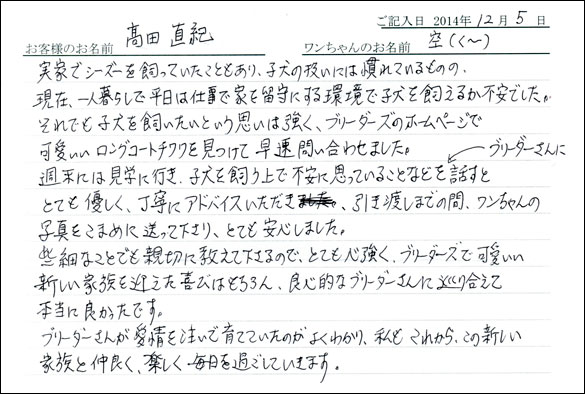 ご記入日 2014年12月5日
お客様のお名前 髙田 直紀 ワンちゃんのお名前 空(くー)
実家でシーズーを飼っていたこともあり、子犬の扱いには慣れているものの、
現在、一人暮らしで平日は仕事で家を留守にする環境で子犬を飼えるか不安でした。
それでも子犬を飼いたいという思いは強く、ブリーダーズのホームページで
可愛いいロングコートチワワを見つけて早速問い合わせました。
ブリーダーさんに
週末には見学に行き、子犬を飼う上で不安に思っていることなどを話すと
とても優しく、丁寧にアドバイスいただき、引き渡しまでの間、ワンちゃんの
写真をこまめに送って下さり、とても安心しました。
些細なことでも親切に教えて下さるので、とても心強く、ブリーダーズで可愛いい
新しい家族を迎えた喜びはもちろん、良心的なブリーダーさんに巡り合えて
本当に良かったです。
ブリーダーさんが愛情を注いで育てていたのがよくわかり、私もこれから、この新しい
家族と仲良く、楽しく毎日を過ごしていきます。